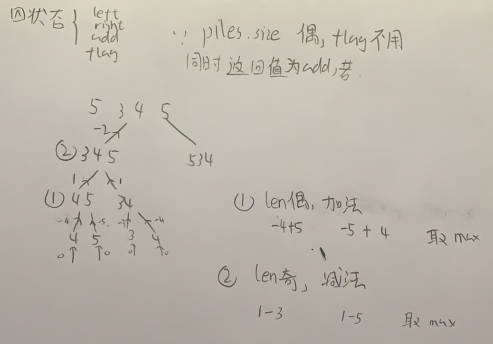 四状态 { left
right
add
flag
∵ piles.size 偶, flag 不用
同时 返回值为 add, 考
5 3 4 5
-2
② 3 4 5
5 3 4
1 1
① 4 5 3 4
-4 -5 -3 -4
4 5 3 4
0↑ ↑0 0↑ ↑0
① len偶, 加法
-4+5 -5+4 取 max
② len奇, 减法
1-3 1-5 取 max